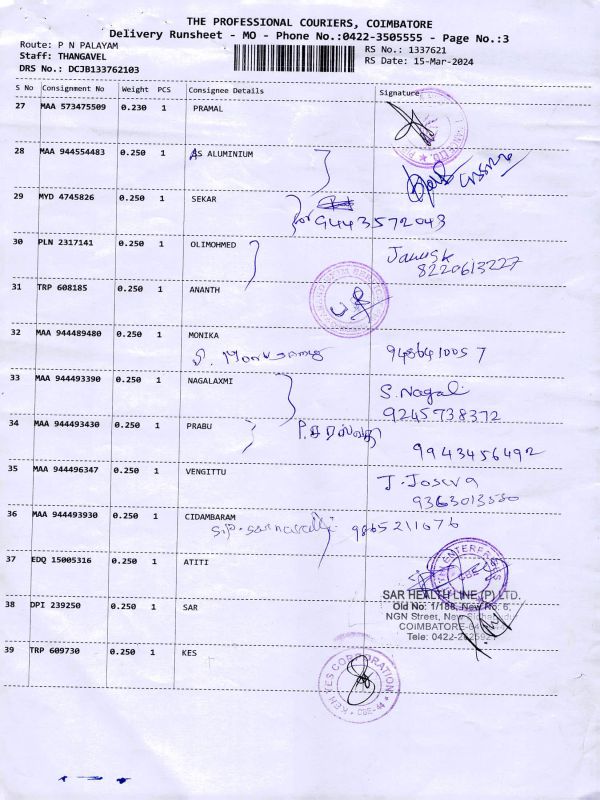 THE PROFESSIONAL COURIERS, COIMBATORE
Delivery Runsheet - MO - Phone No.:0422-3505555 - Page No.:3
Route: P N PALAYAM
RS No.: 1337621
Staff: THANGAVEL
RS Date: 15-Mar-2024
DRS No.: DCJB133762103
S No Consignment No Weight PCS Consignee Details Signature
27 MAA 573475509 0.230 1 PRAMAL
28 MAA 944554483 0.250 1 AS ALUMINIUM
29 MYD 4745826 0.250 1 SEKAR
for 9443572043
30 PLN 2317141 0.250 1 OLIMOHMED
8220613227
31 TRP 608185 0.250 1 ANANTH
32 MAA 944489480 0.250 1 MONIKA
9486410057
33 MAA 944493390 0.250 1 NAGALAXMI
S. Nagali
9245738372
34 MAA 944493430 0.250 1 PRABU
9943456492
35 MAA 944496347 0.250 1 VENGITTU
J. Joseva
9363013530
36 MAA 944493930 0.250 1 CIDAMBARAM
9865211676
37 EDQ 15005316 0.250 1 ATITI
ENTERPRISES
CBE
38 DPI 239250 0.250 1 SAR
SAR HEALTH LINE (P) LTD.
Old No: 1/186, New No. 6,
NGN Street, New
COIMBATORE
Tele: 0422-
39 TRP 609730 0.250 1 KES
K-EH YES CORPORATION
CBE-44